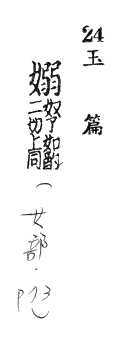 24玉篇
嫋奴了如酌二切上同
(女部·P73)